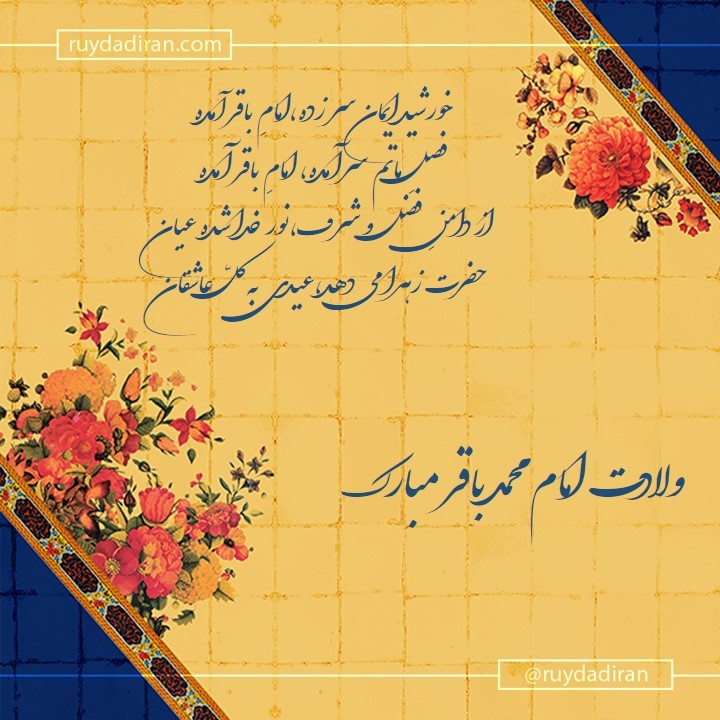 ruydadiran.com
خورشید ایمان سر زده، امامِ باقر آمده
فصل ماتم سر آمده، امامِ باقر آمده
از دامنِ فضل و شرف، نور خدا شده عیان
حضرت زهرا می دهد، عیدی به کلّ عاشقان
ولادت امام محمد باقر مبارک
@ruydadiran